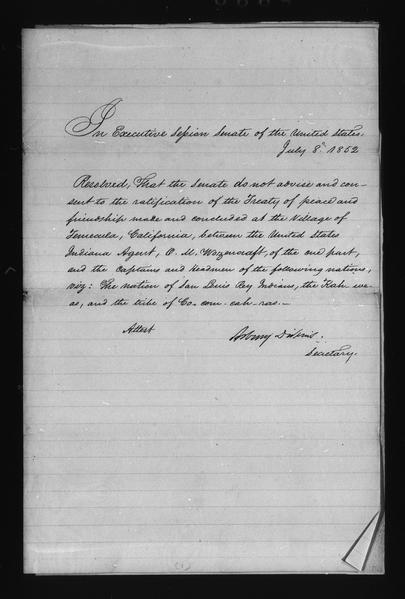 In Executive Session Senate of the United States,
July 8th 1852
Resolved, That the Senate do not advise and con-
sent to the ratification of the Treaty of peace and
friendship made and concluded at the Village of
Temecula, California, between the United States
Indiana Agent, O. M. Wozencraft, of the one part,
and the Captains and Headmen of the following nations,
viz: The nation of San Louis Rey Indians, the Kah-we-
as, and the tribe of Co-com-cah-ras.—
Attest
Asbury Dickins.
Secretary.